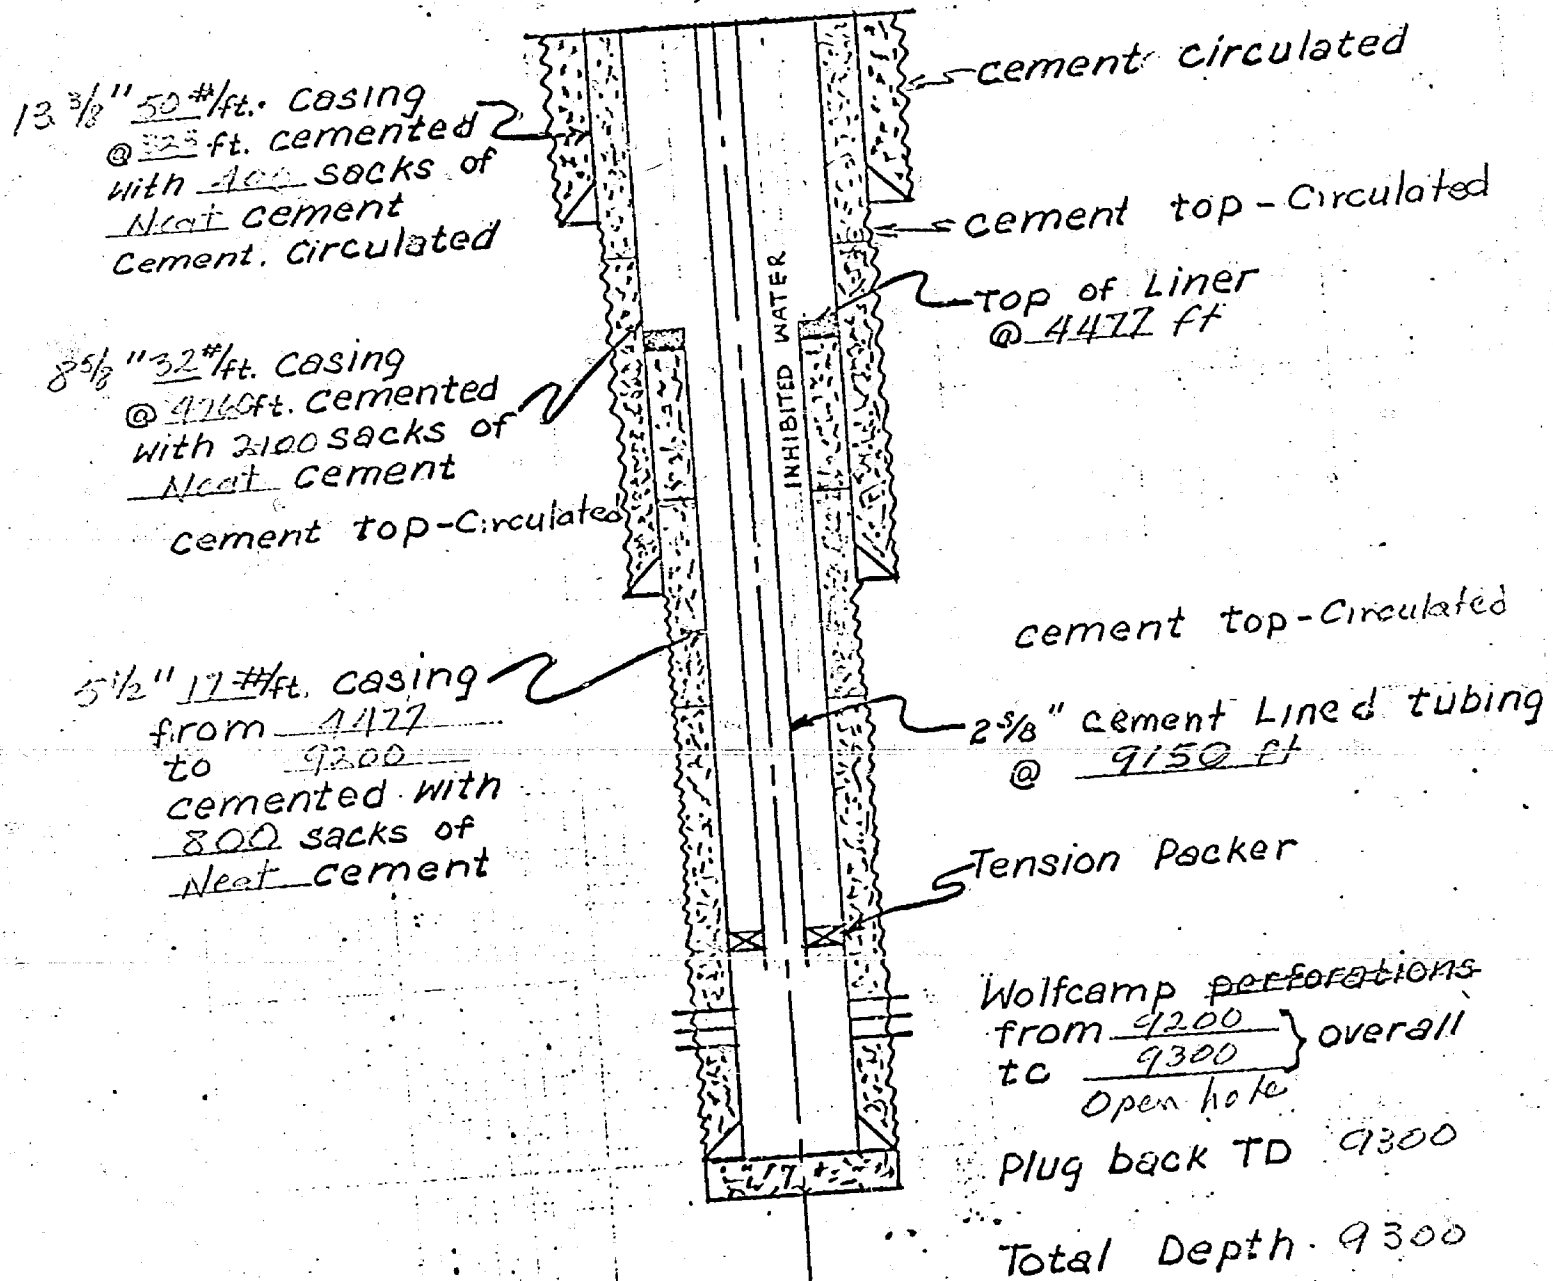 13 3/8" 50 #/ft. casing
@ 323 ft. cemented
with 400 sacks of
Neat cement
Cement. Circulated
8 5/8" 32 #/ft. casing
@ ft. cemented
with 2100 sacks of
Neat cement
cement top-Circulated
5 1/2" 17 #/ft. casing
from 4477
to 9200
cemented with
800 sacks of
Neat cement
INHIBITED WATER
cement circulated
cement top-Circulated
Top of Liner
@ 4477 ft
cement top-Circulated
2 3/8" cement Lined tubing
@ 9150 ft
Tension Packer
Wolfcamp perforations
from 9200
to 9300 } overall
Open hole
Plug back TD 9300
Total Depth 9300